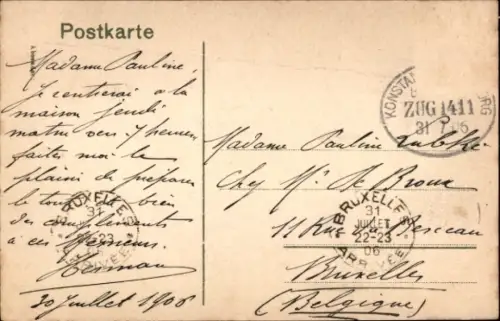 Postkarte
Madame Pauline,
Je rentrerai à la
maison jeudi
matin vers 7 heures
faites moi le
plaisir de préparer
le tout bien
des compliments
à ces Messieurs
Herman
30 Juillet 1906
KONSTAN
ZUG 1411
31 7 06
Madame Pauline
Chez Mr. De Broux
11 Rue du Berceau
Bruxelles
(Belgique)
BRUXELLES
31
JUILLET
22-23
06
ARRIVEE
BRUXELLES
31